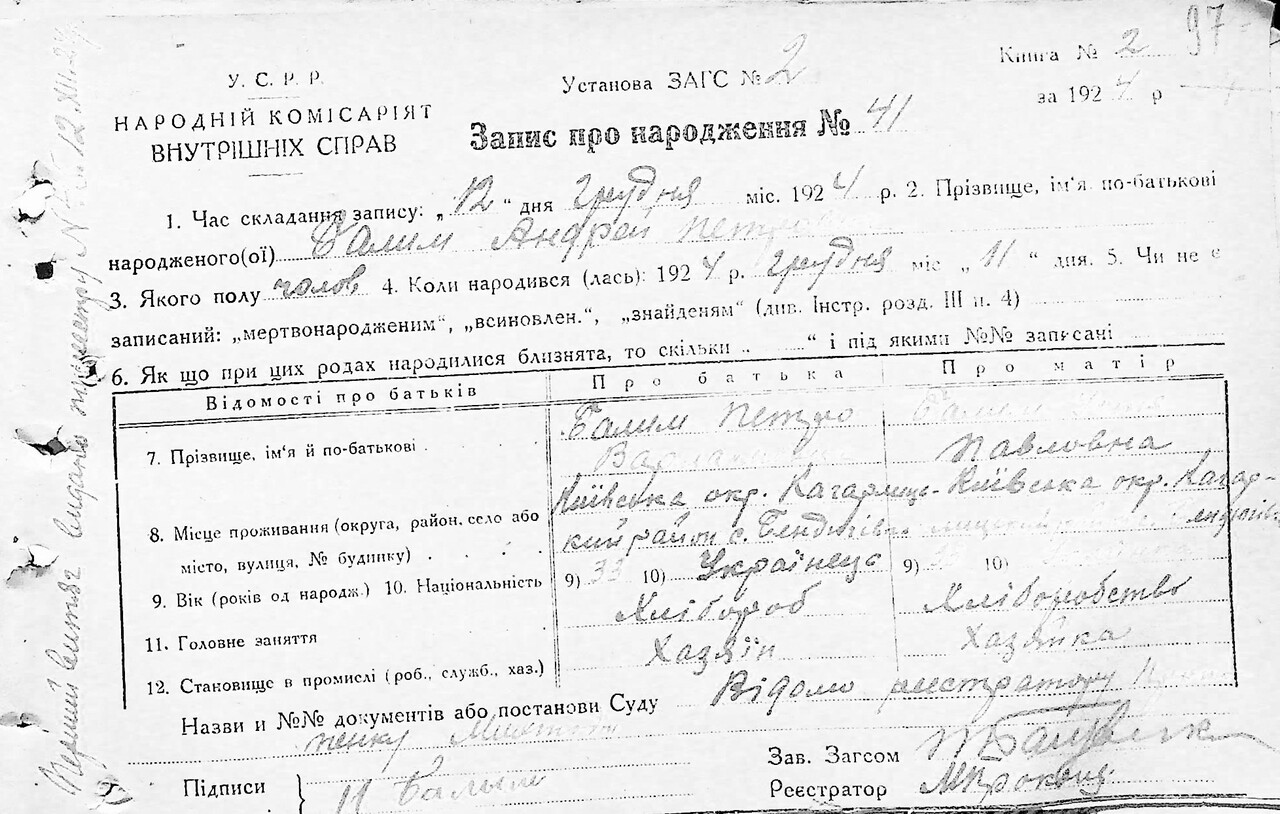 У. С. Р. Р.
НАРОДНІЙ КОМІСАРІЯТ
ВНУТРІШНІХ СПРАВ
Установа ЗАГС № 2
Книга № 2 97
за 1924 р
Запис про народження № 41
1. Час складання запису: „12“ дня грудня міс. 1924 р. 2. Прізвище, ім'я по-батькові
народженого(ої) Балим Андрей
3. Якого полу чолов 4. Коли народився (лась): 1924 р. грудня міс „11“ дня. 5. Чи не є
записаний: „мертвонародженим“, „всиновлен.“, „знайденям“ (див. Інстр. розд. III п. 4)
6. Як що при цих родах народилися близнята, то скільки „ “ і під якими №№ записані
Відомості про батьків Про батька Про матір
7. Прізвище, ім'я й по-батькові Балим Петро Балим Павловна
8. Місце проживання (округа, район, село або місто, вулиця, № будинку) Київська окр. Кагарлицький район с. Київська окр. Кагар-
9. Вік (років од народж.) 10. Національність 9) 33 10) Українець 9) 10)
11. Головне заняття Хлібороб Хліборобство
12. Становище в промислі (роб., служб., хаз.) Хазяїн Хазяйка
Назви и №№ документів або постанови Суду Відомо реєстратору
пенку
Підписи П Балым
Зав. Загсом
Реєстратор
Перший витяг видано по реєстру № 12.XII.24